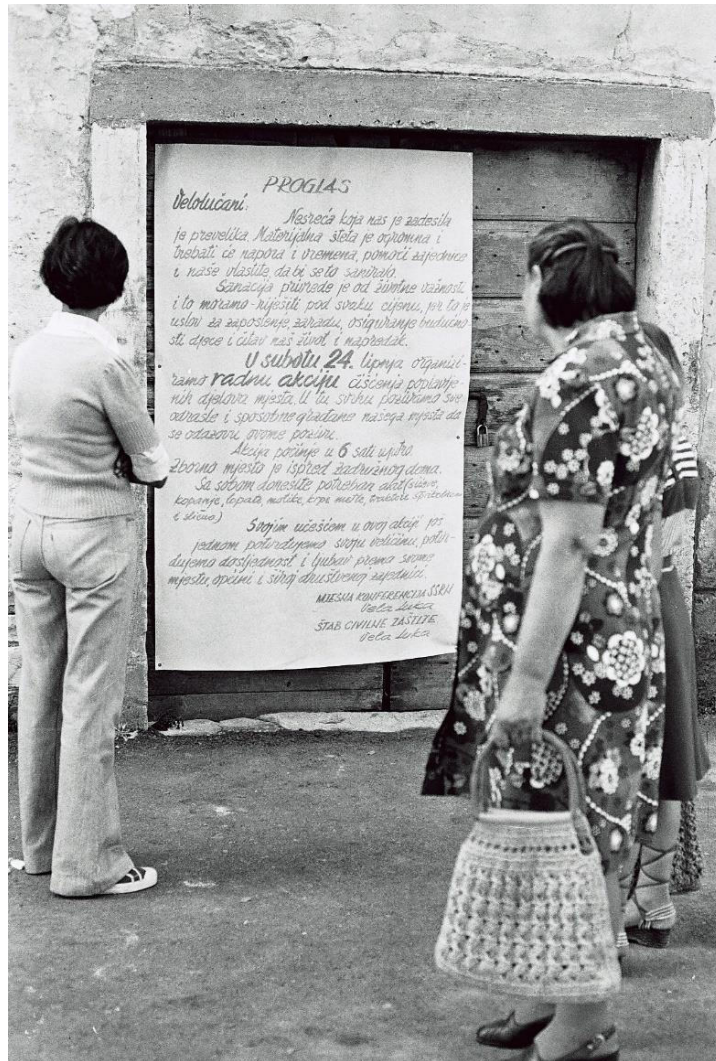 PROGLAS
Velolučani:
Nesreća koja nas je zadesila
je prevelika. Materijalna šteta je ogromna i
trebati će napora i vremena, pomoći zajednice
i naše vlastite, da bi se to saniralo.
Sanacija privrede je od životne važnosti
i to moramo riješiti pod svaku cijenu, jer to je
uslov za zaposlenje, zaradu, osiguranje budućno-
sti djece i čitav naš život i napredak.
U subotu 24. lipnja organizi-
ramo radnu akciju čišćenja poplavlje-
nih djelova mjesta. U tu svrhu pozivamo sve
odrasle i sposobne građane našega mjesta da
se odazovu ovome pozivu.
Akcija počinje u 6 sati ujutro.
Zborno mjesto je ispred zadružnog doma.
Sa sobom donesite potreban alat
kopanje, lopate, motike, metle, traktore
i slično)
Svojim učešćem u ovoj akciji još
jednom potvrđujemo svoju veličinu, potvr-
đujemo dosljednost i ljubav prema svome
mjestu, općini i široj društvenoj zajednici.
MJESNA KONFERENCIJA SSRN
Vela Luka
ŠTAB CIVILNE ZAŠTITE
Vela Luka